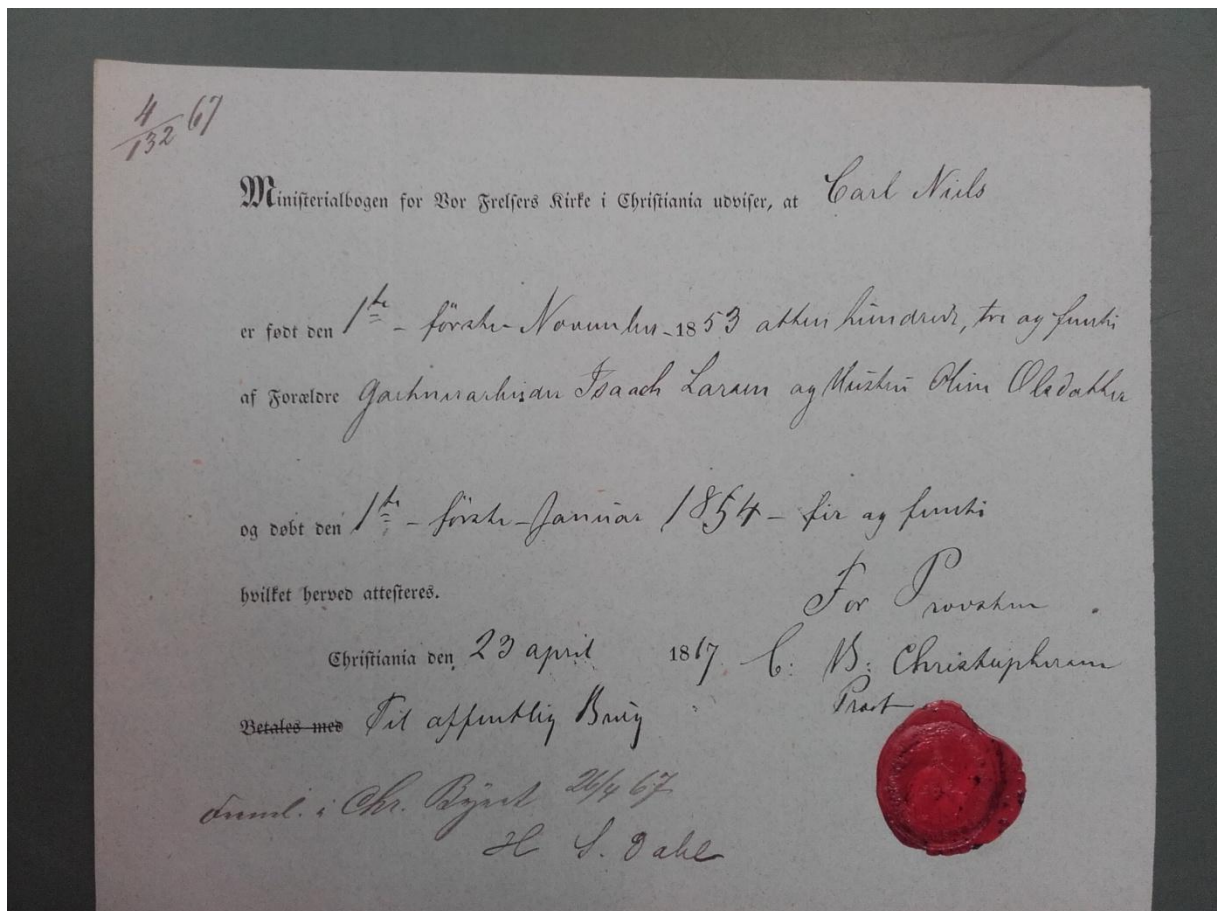 4/132 67
Ministerialbogen for Vor Frelsers Kirke i Christiania udviser, at Carl Niels
er født den 1te - første November 1853 atten hundrede, tre og femti
af Forældre Gartnerarbeider Isaach Larsen og Hustru Oline Olsdatter
og døbt den 1te - første Januar 1854 - fir og femti
hvilket herved attesteres.
For Provsten
Christiania den 23 april 1867 C: B: Christophersen
Præst
Betales med Til offentlig Brug
Freml. i Chr. Byret 26/4 67
H S. Dahl